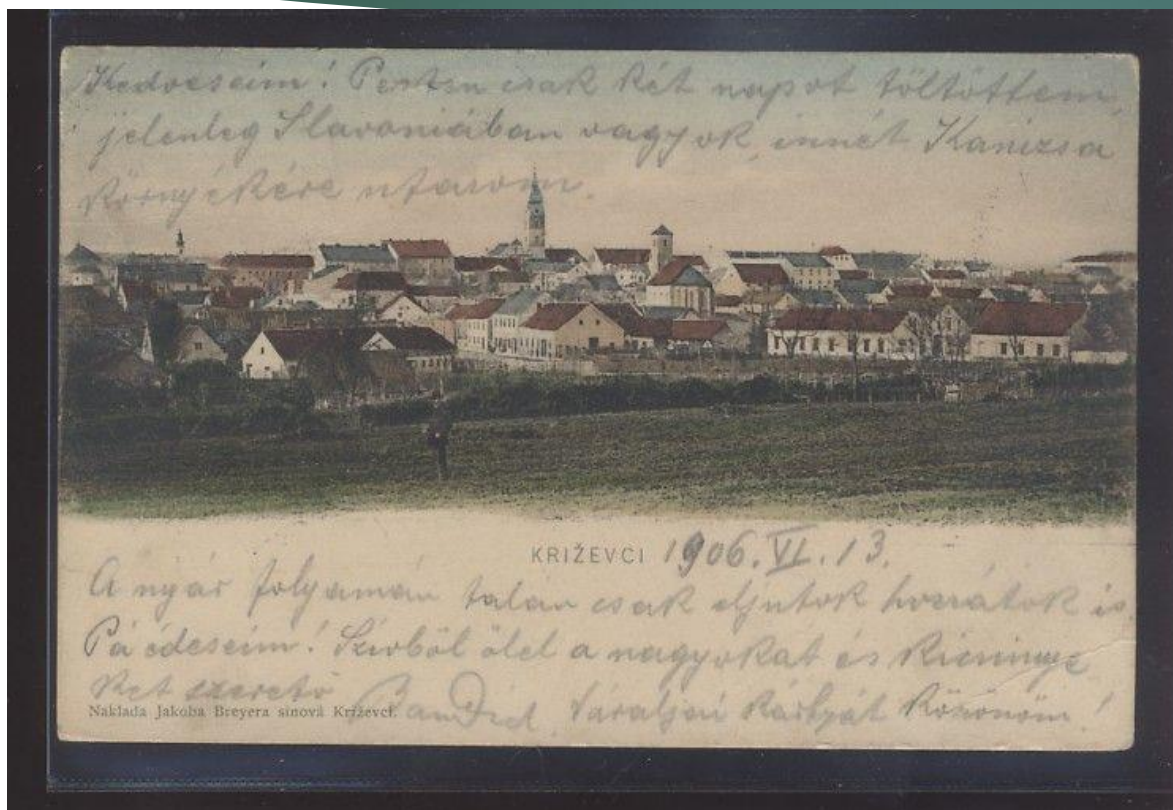 Kedveseim! Pesten csak két napot töltöttem,
jelenleg Slavoniában vagyok, innét Kanizsa
környékére utazom.
KRIŽEVCI 1906. VI. 13.
A nyár folyamán talán csak eljutok hozzátok is
Pá édeseim! Szivből ölel a nagyokat és kicsinye
ket szerető
Naklada Jakoba Breyera sinová Križevci.
kártyát köszönöm!